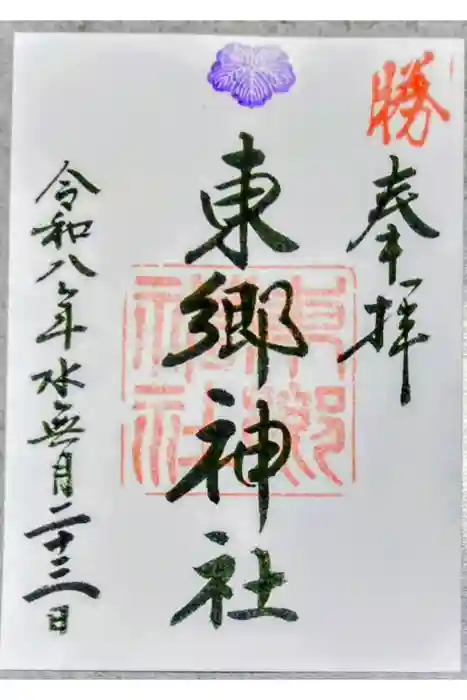 勝
奉拝
東郷神社
東郷神社
令和八年水無月二十三日